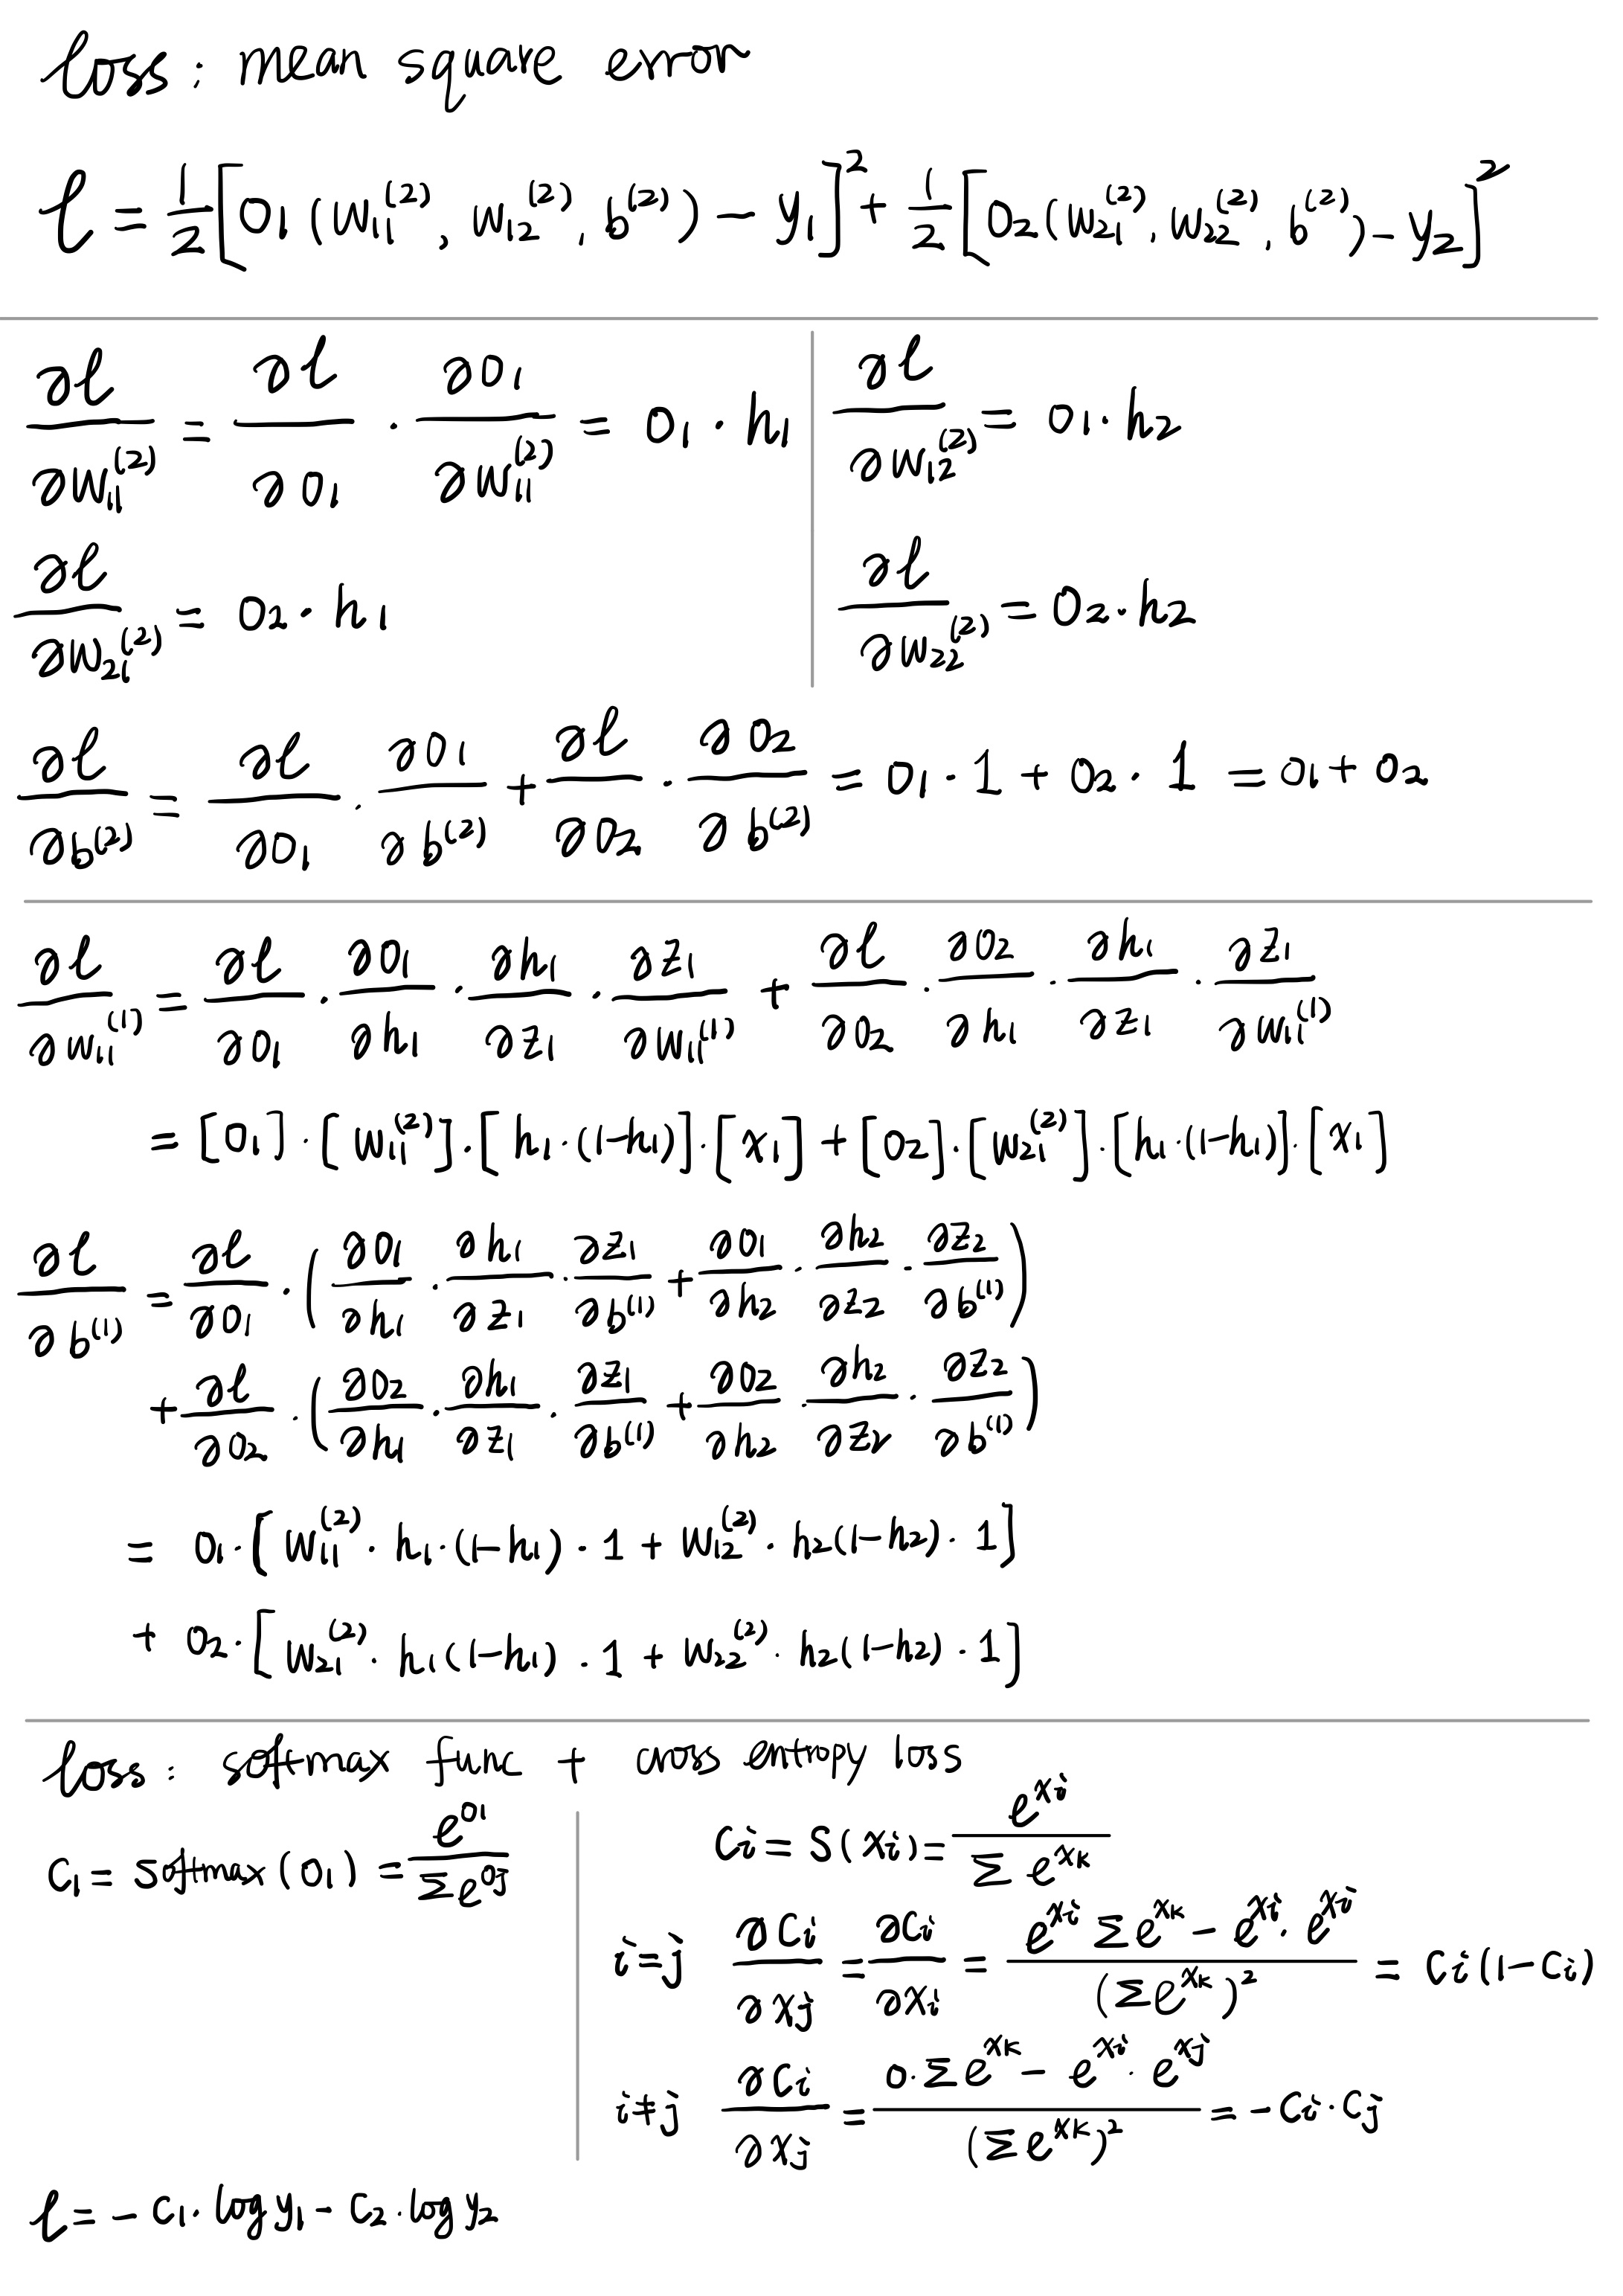 loss: mean square error
ℓ = 1/2 [O₁(W₁₁⁽²⁾, W₁₂⁽²⁾, b⁽²⁾) − y₁]² + 1/2 [O₂(W₂₁⁽²⁾, W₂₂⁽²⁾, b⁽²⁾) − y₂]²
∂ℓ/∂W₁₁⁽²⁾ = ∂ℓ/∂O₁ · ∂O₁/∂W₁₁⁽²⁾ = O₁ · h₁
∂ℓ/∂W₁₂⁽²⁾ = O₁ · h₂
∂ℓ/∂W₂₁⁽²⁾ = O₂ · h₁
∂ℓ/∂W₂₂⁽²⁾ = O₂ · h₂
∂ℓ/∂b⁽²⁾ = ∂ℓ/∂O₁ · ∂O₁/∂b⁽²⁾ + ∂ℓ/∂O₂ · ∂O₂/∂b⁽²⁾ = O₁ · 1 + O₂ · 1 = O₁ + O₂
∂ℓ/∂W₁₁⁽¹⁾ = ∂ℓ/∂O₁ · ∂O₁/∂h₁ · ∂h₁/∂z₁ · ∂z₁/∂W₁₁⁽¹⁾ + ∂ℓ/∂O₂ · ∂O₂/∂h₁ · ∂h₁/∂z₁ · ∂z₁/∂W₁₁⁽¹⁾
= [O₁] · [W₁₁⁽²⁾] · [h₁ · (1−h₁)] · [x₁] + [O₂] · [W₂₁⁽²⁾] · [h₁ · (1−h₁)] · [x₁]
∂ℓ/∂b⁽¹⁾ = ∂ℓ/∂O₁ · (∂O₁/∂h₁ · ∂h₁/∂z₁ · ∂z₁/∂b⁽¹⁾ + ∂O₁/∂h₂ · ∂h₂/∂z₂ · ∂z₂/∂b⁽¹⁾)
+ ∂ℓ/∂O₂ · (∂O₂/∂h₁ · ∂h₁/∂z₁ · ∂z₁/∂b⁽¹⁾ + ∂O₂/∂h₂ · ∂h₂/∂z₂ · ∂z₂/∂b⁽¹⁾)
= O₁ · [W₁₁⁽²⁾ · h₁ · (1−h₁) · 1 + W₁₂⁽²⁾ · h₂(1−h₂) · 1]
+ O₂ · [W₂₁⁽²⁾ · h₁(1−h₁) · 1 + W₂₂⁽²⁾ · h₂(1−h₂) · 1]
loss: softmax func + cross entropy loss
C₁ = softmax(O₁) = e^{O₁} / Σe^{Oj}
Ci = S(xi) = e^{xi} / Σ e^{xk}
i=j ∂Ci/∂xj = ∂Ci/∂xi = (e^{xi} Σe^{xk} − e^{xi} · e^{xi}) / (Σe^{xk})² = Ci(1−Ci)
i≠j ∂Ci/∂xj = (0 · Σe^{xk} − e^{xi} · e^{xj}) / (Σe^{xk})² = −Ci · Cj
ℓ = − C₁ · log y₁ − C₂ · log y₂